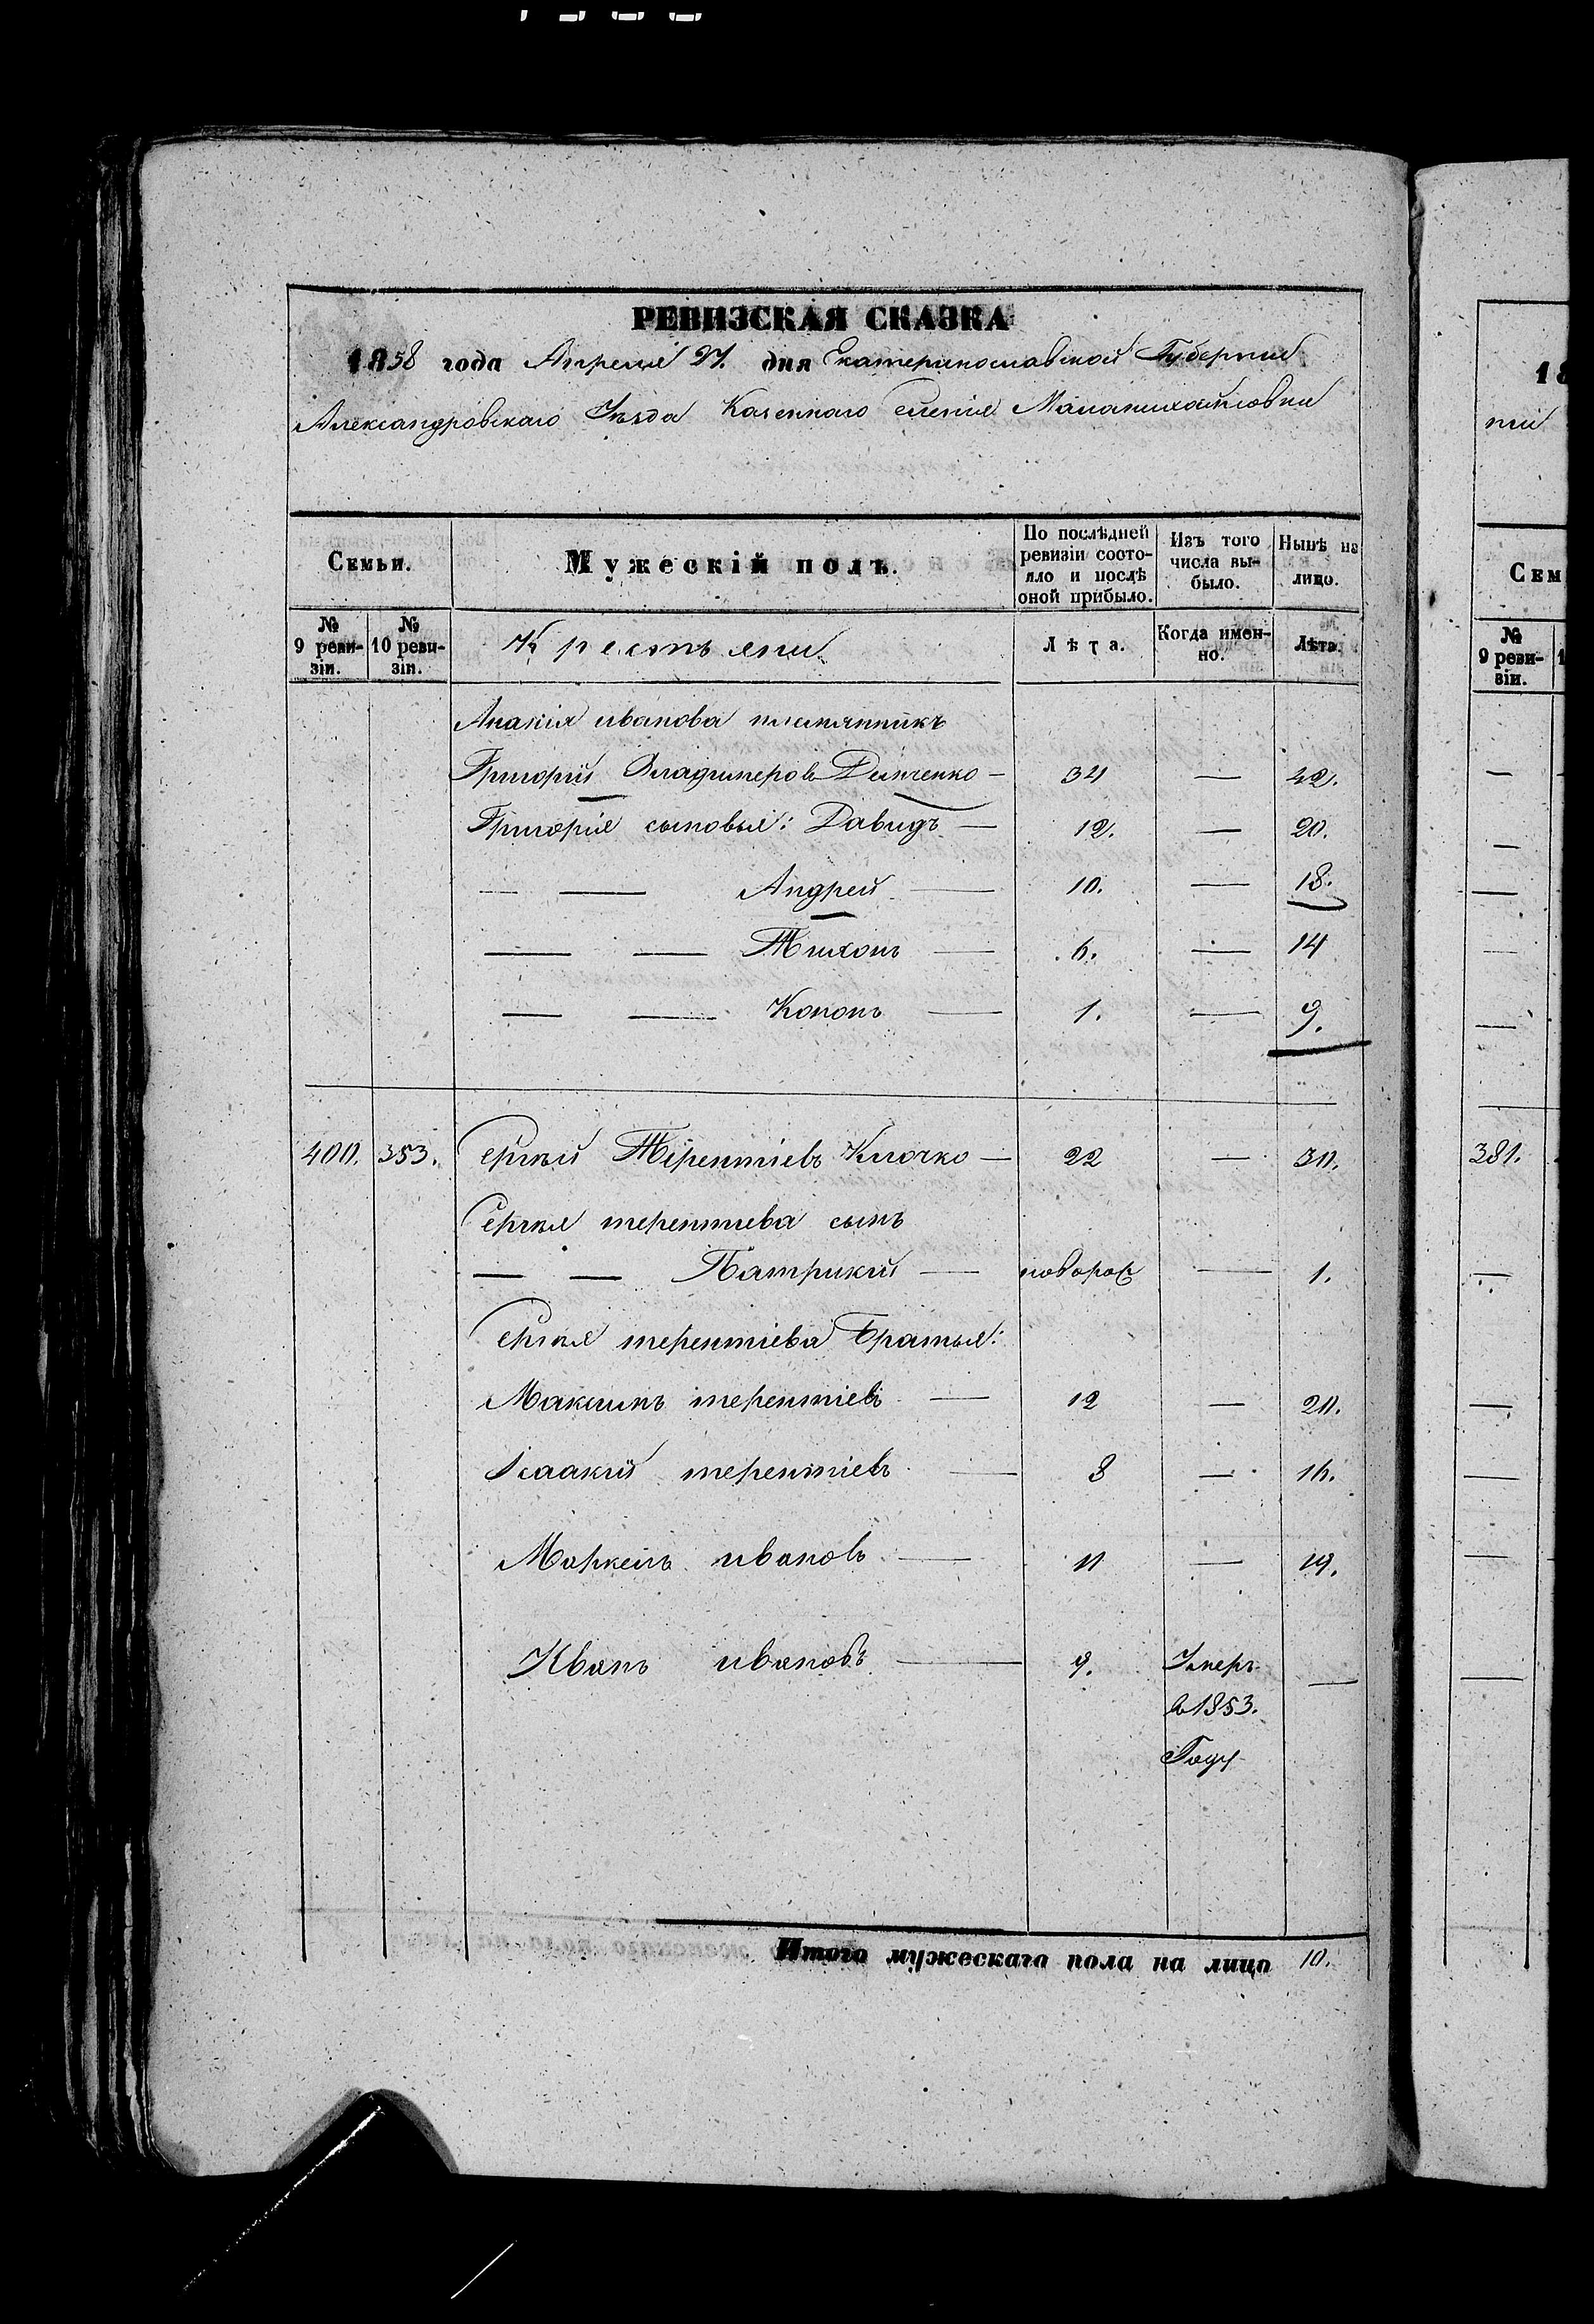 РЕВИЗСКАЯ СКАЗКА
1858 года Апреля 27. дня Екатеринославской Губерніи
Александровскаго Уѣзда Казеннаго селенія Маломихайловки
Семьи. Мужескій полъ. По послѣдней ревизіи состояло и послѣ оной прибыло. Изъ того числа выбыло. Нынѣ на лицо.
№ 9 ревизіи. № 10 ревизіи. Крестьяни Лѣта. Когда именно. Лѣта.
иванова племянникъ
Григорій Владимеровъ — 34 — 42.
Григорія сыновья: Давидъ — 12. — 20.
— — Андрей — 10. — 18.
— — Тихонъ — 6. — 14
— — Кононъ — 1. — 9.
400. 353. Сергѣй Терентіевъ Клочко — 22 — 30.
Сергѣя терентиева сынъ
— — Патрикій — новорож — 1.
Сергѣя терентіева Братья:
Максимъ терентіевъ — 12 — 20.
Исаакій терентіевъ — 8 — 16.
Маркелъ ивановъ — 11 — 19.
Иванъ ивановъ — 9. Умеръ —
в 1853.
Году
Итого мужескаго пола на лицо 10.
18
ніи
Сем
№ 9 ревизіи.
381.